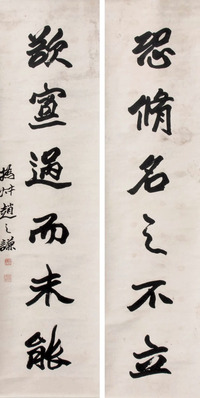 恐脩名之不立
欲宣過而未能
撝叔趙之謙